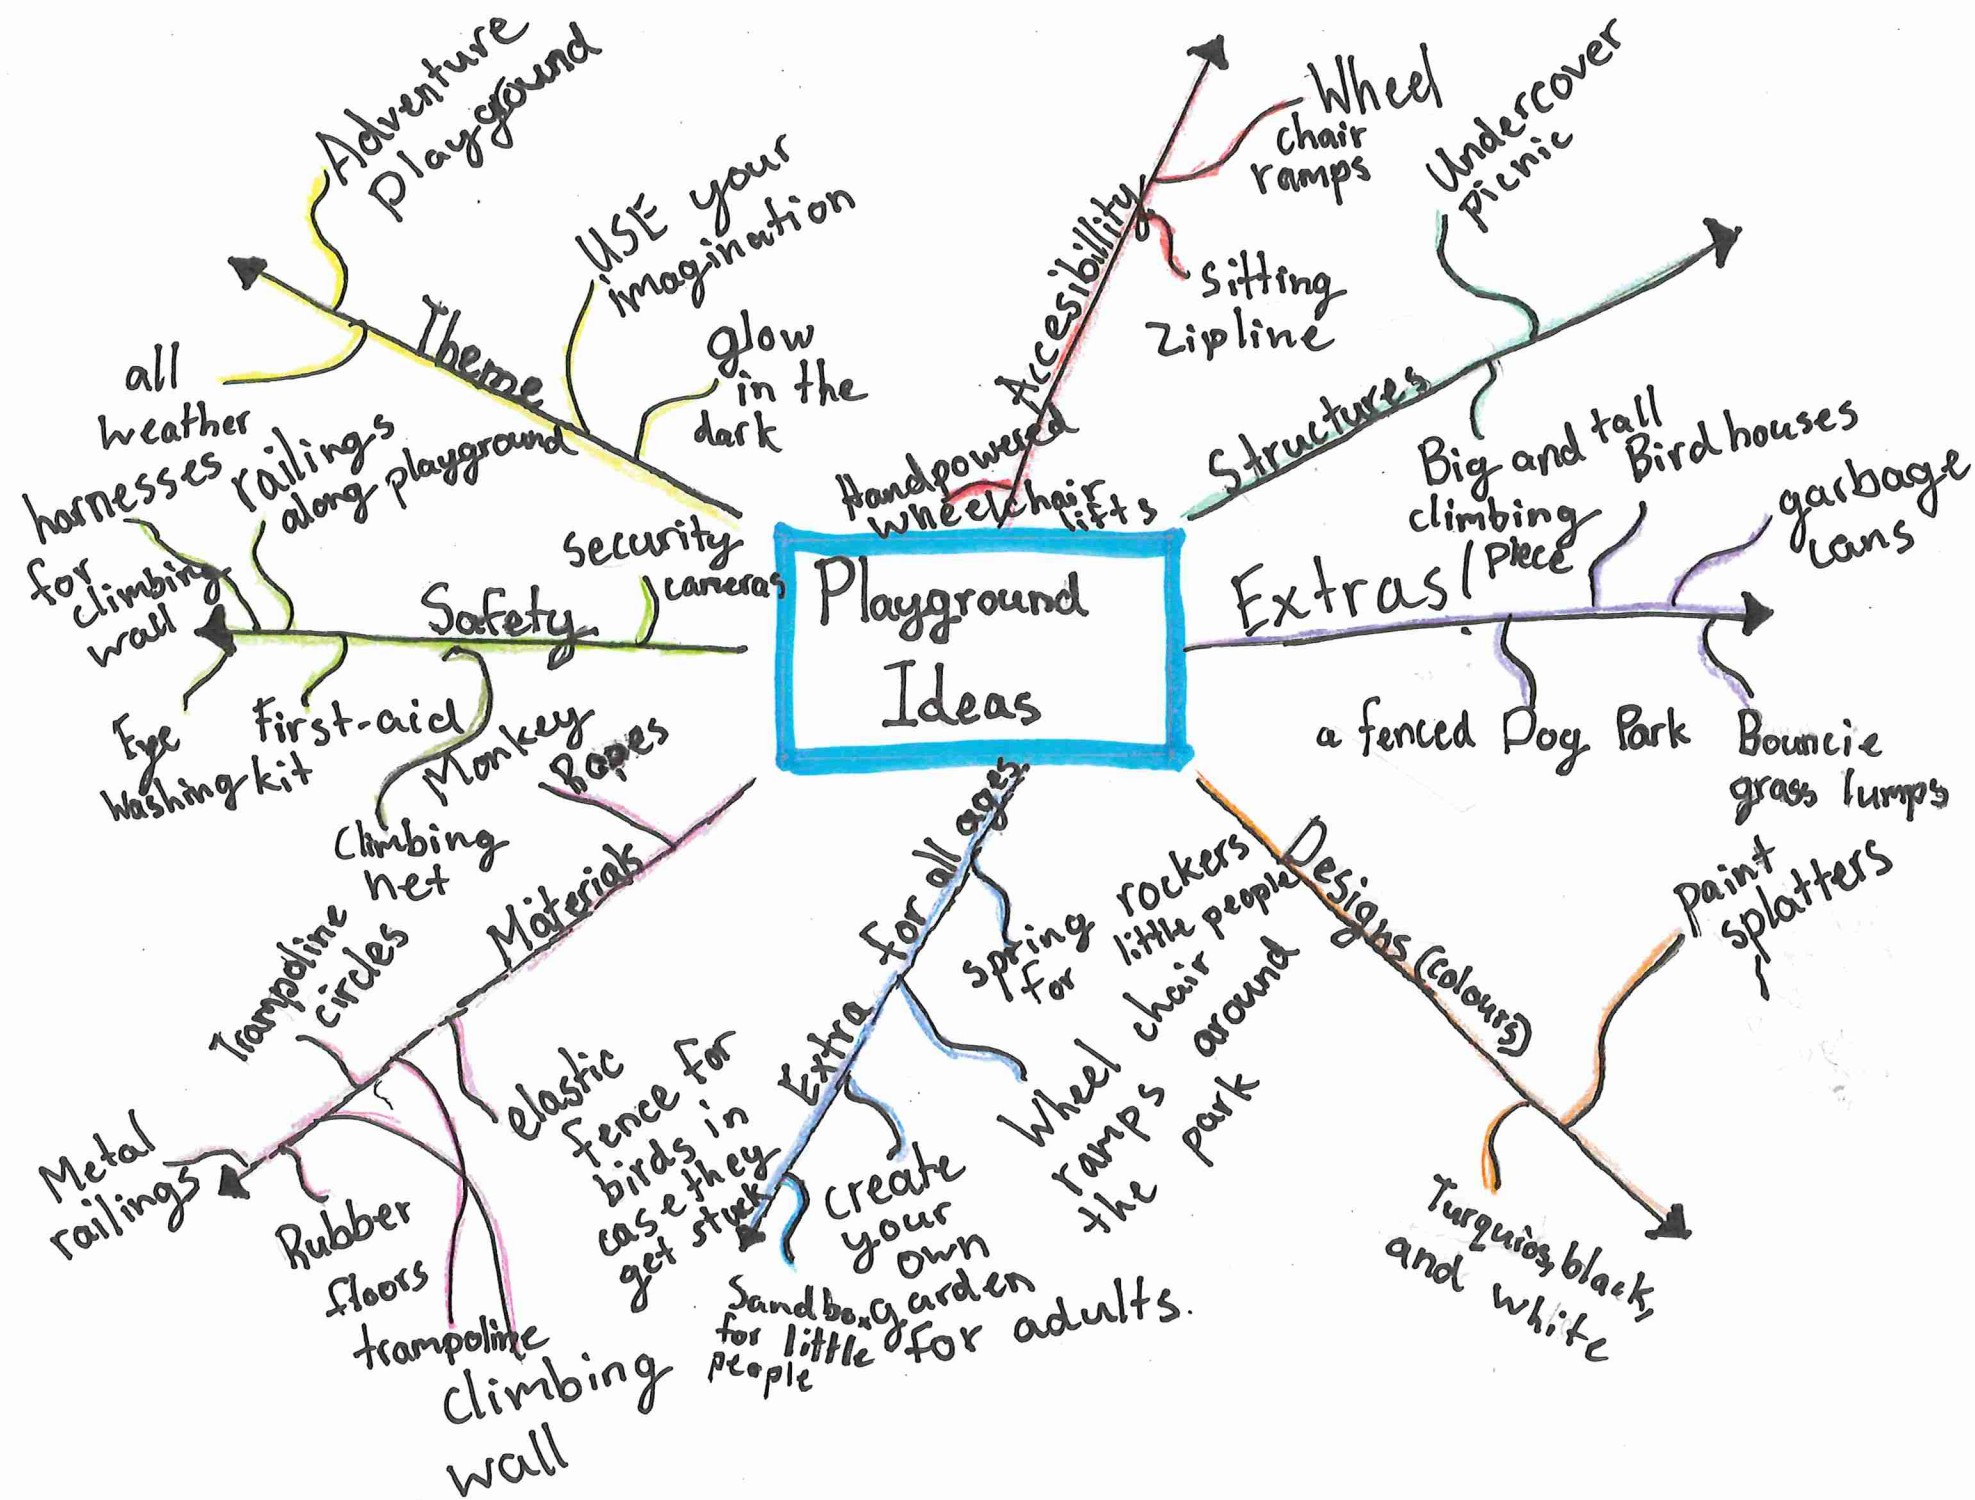 Playground
Ideas
Theme
Adventure
Playground
all
weather
USE your
imagination
glow
in the
dark
Accesibillity
Wheel
chair
ramps
Sitting
Zipline
Handpowered
wheelchair
lifts
Structures
Undercover
picnic
Big and tall
climbing
Piece
Extras!
Birdhouses
garbage
cans
a fenced Dog Park
Bouncie
grass lumps
Designs (colours)
paint
splatters
Turquios, black,
and white
Extra for all ages.
spring rockers
for little people
Wheel chair
ramps around
the park
create
your
own
garden
for adults.
Sandbox
for little
people
Materials
Ropes
Trampoline
circles
elastic
fence for
birds in
case they
get stuck
Metal
railings
Rubber
floors
trampoline
climbing
wall
Safety
security
cameras
railings
along playground
harnesses
for
climbing
wall
Eye
Washing kit
First-aid
Monkey
Climbing
net